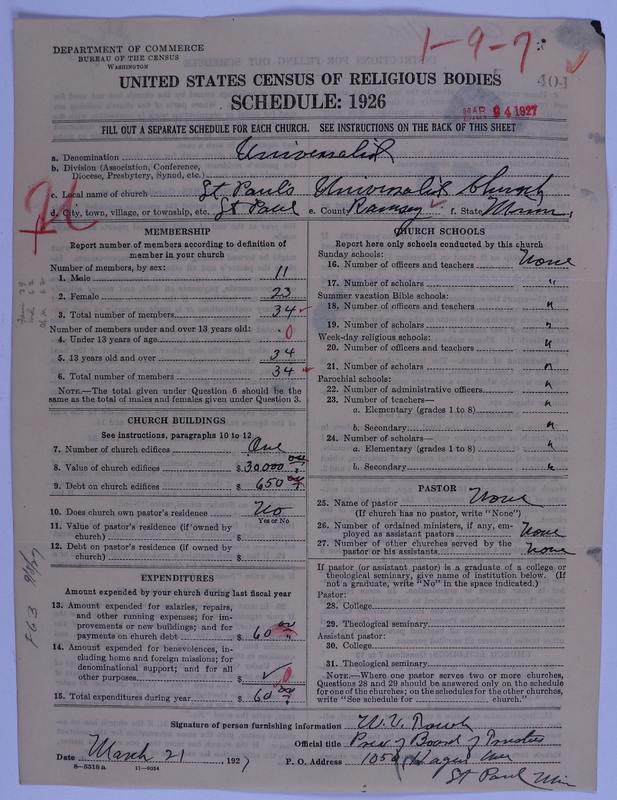 DEPARTMENT OF COMMERCE
BUREAU OF THE CENSUS
WASHINGTON
1-9-7
UNITED STATES CENSUS OF RELIGIOUS BODIES
404
SCHEDULE: 1926
MAR 24 1927
FILL OUT A SEPARATE SCHEDULE FOR EACH CHURCH. SEE INSTRUCTIONS ON THE BACK OF THIS SHEET
a. Denomination Universalist
b. Division (Association, Conference, Diocese, Presbytery, Synod, etc.)
c. Local name of church St. Pauls Universalist Church
d. City, town, village, or township, etc. St Paul e. County Ramsey f. State Minn.
MEMBERSHIP
Report number of members according to definition of
member in your church
Number of members, by sex:
1. Male 11
2. Female 23
3. Total number of members 34
Number of members under and over 13 years old:
4. Under 13 years of age 0
5. 13 years old and over 34
6. Total number of members 34
NOTE.—The total given under Question 6 should be the
same as the total of males and females given under Question 3.
CHURCH BUILDINGS
See instructions, paragraphs 10 to 12
7. Number of church edifices One
8. Value of church edifices $30,000
9. Debt on church edifices $650
10. Does church own pastor's residence? No
Yes or No
11. Value of pastor's residence (if owned by
church) $
12. Debt on pastor's residence (if owned by
church) $
EXPENDITURES
Amount expended by church during last fiscal year
13. Amount expended for salaries, repairs,
and other running expenses; for im-
provements or new buildings; and for
payments on church debt $60
14. Amount expended for benevolences, in-
cluding home and foreign missions; for
denominational support; and for all
other purposes $ 0
15. Total expenditures during year $60
CHURCH SCHOOLS
Report here only schools conducted by this church
Sunday schools:
16. Number of officers and teachers None
17. Number of scholars "
Summer vacation Bible schools:
18. Number of officers and teachers "
19. Number of scholars "
Week-day religious schools:
20. Number of officers and teachers "
21. Number of scholars "
Parochial schools:
22. Number of administrative officers "
23. Number of teachers—
a. Elementary (grades 1 to 8) "
b. Secondary "
24. Number of scholars—
a. Elementary (grades 1 to 8) "
b. Secondary "
PASTOR
25. Name of pastor None
(If church has no pastor, write "None")
26. Number of ordained ministers, if any, em-
ployed as assistant pastors None
27. Number of other churches served by the
pastor or his assistants None
If pastor (or assistant pastor) is a graduate of a college or
theological seminary, give name of institution below. (If
not a graduate, write "No" in the space indicated.)
Pastor:
28. College
29. Theological seminary
Assistant pastor:
30. College
31. Theological seminary
NOTE.—Where one pastor serves two or more churches,
Questions 28 and 29 should be answered only on the schedule
for one of the churches; on the schedules for the other churches,
write "See schedule for church."
Signature of person furnishing information
Official title Pres. of Board of Trustees
Date March 21 1927 P. O. Address 1050 Hague Ave
St Paul Min
8—5318a 11—9034